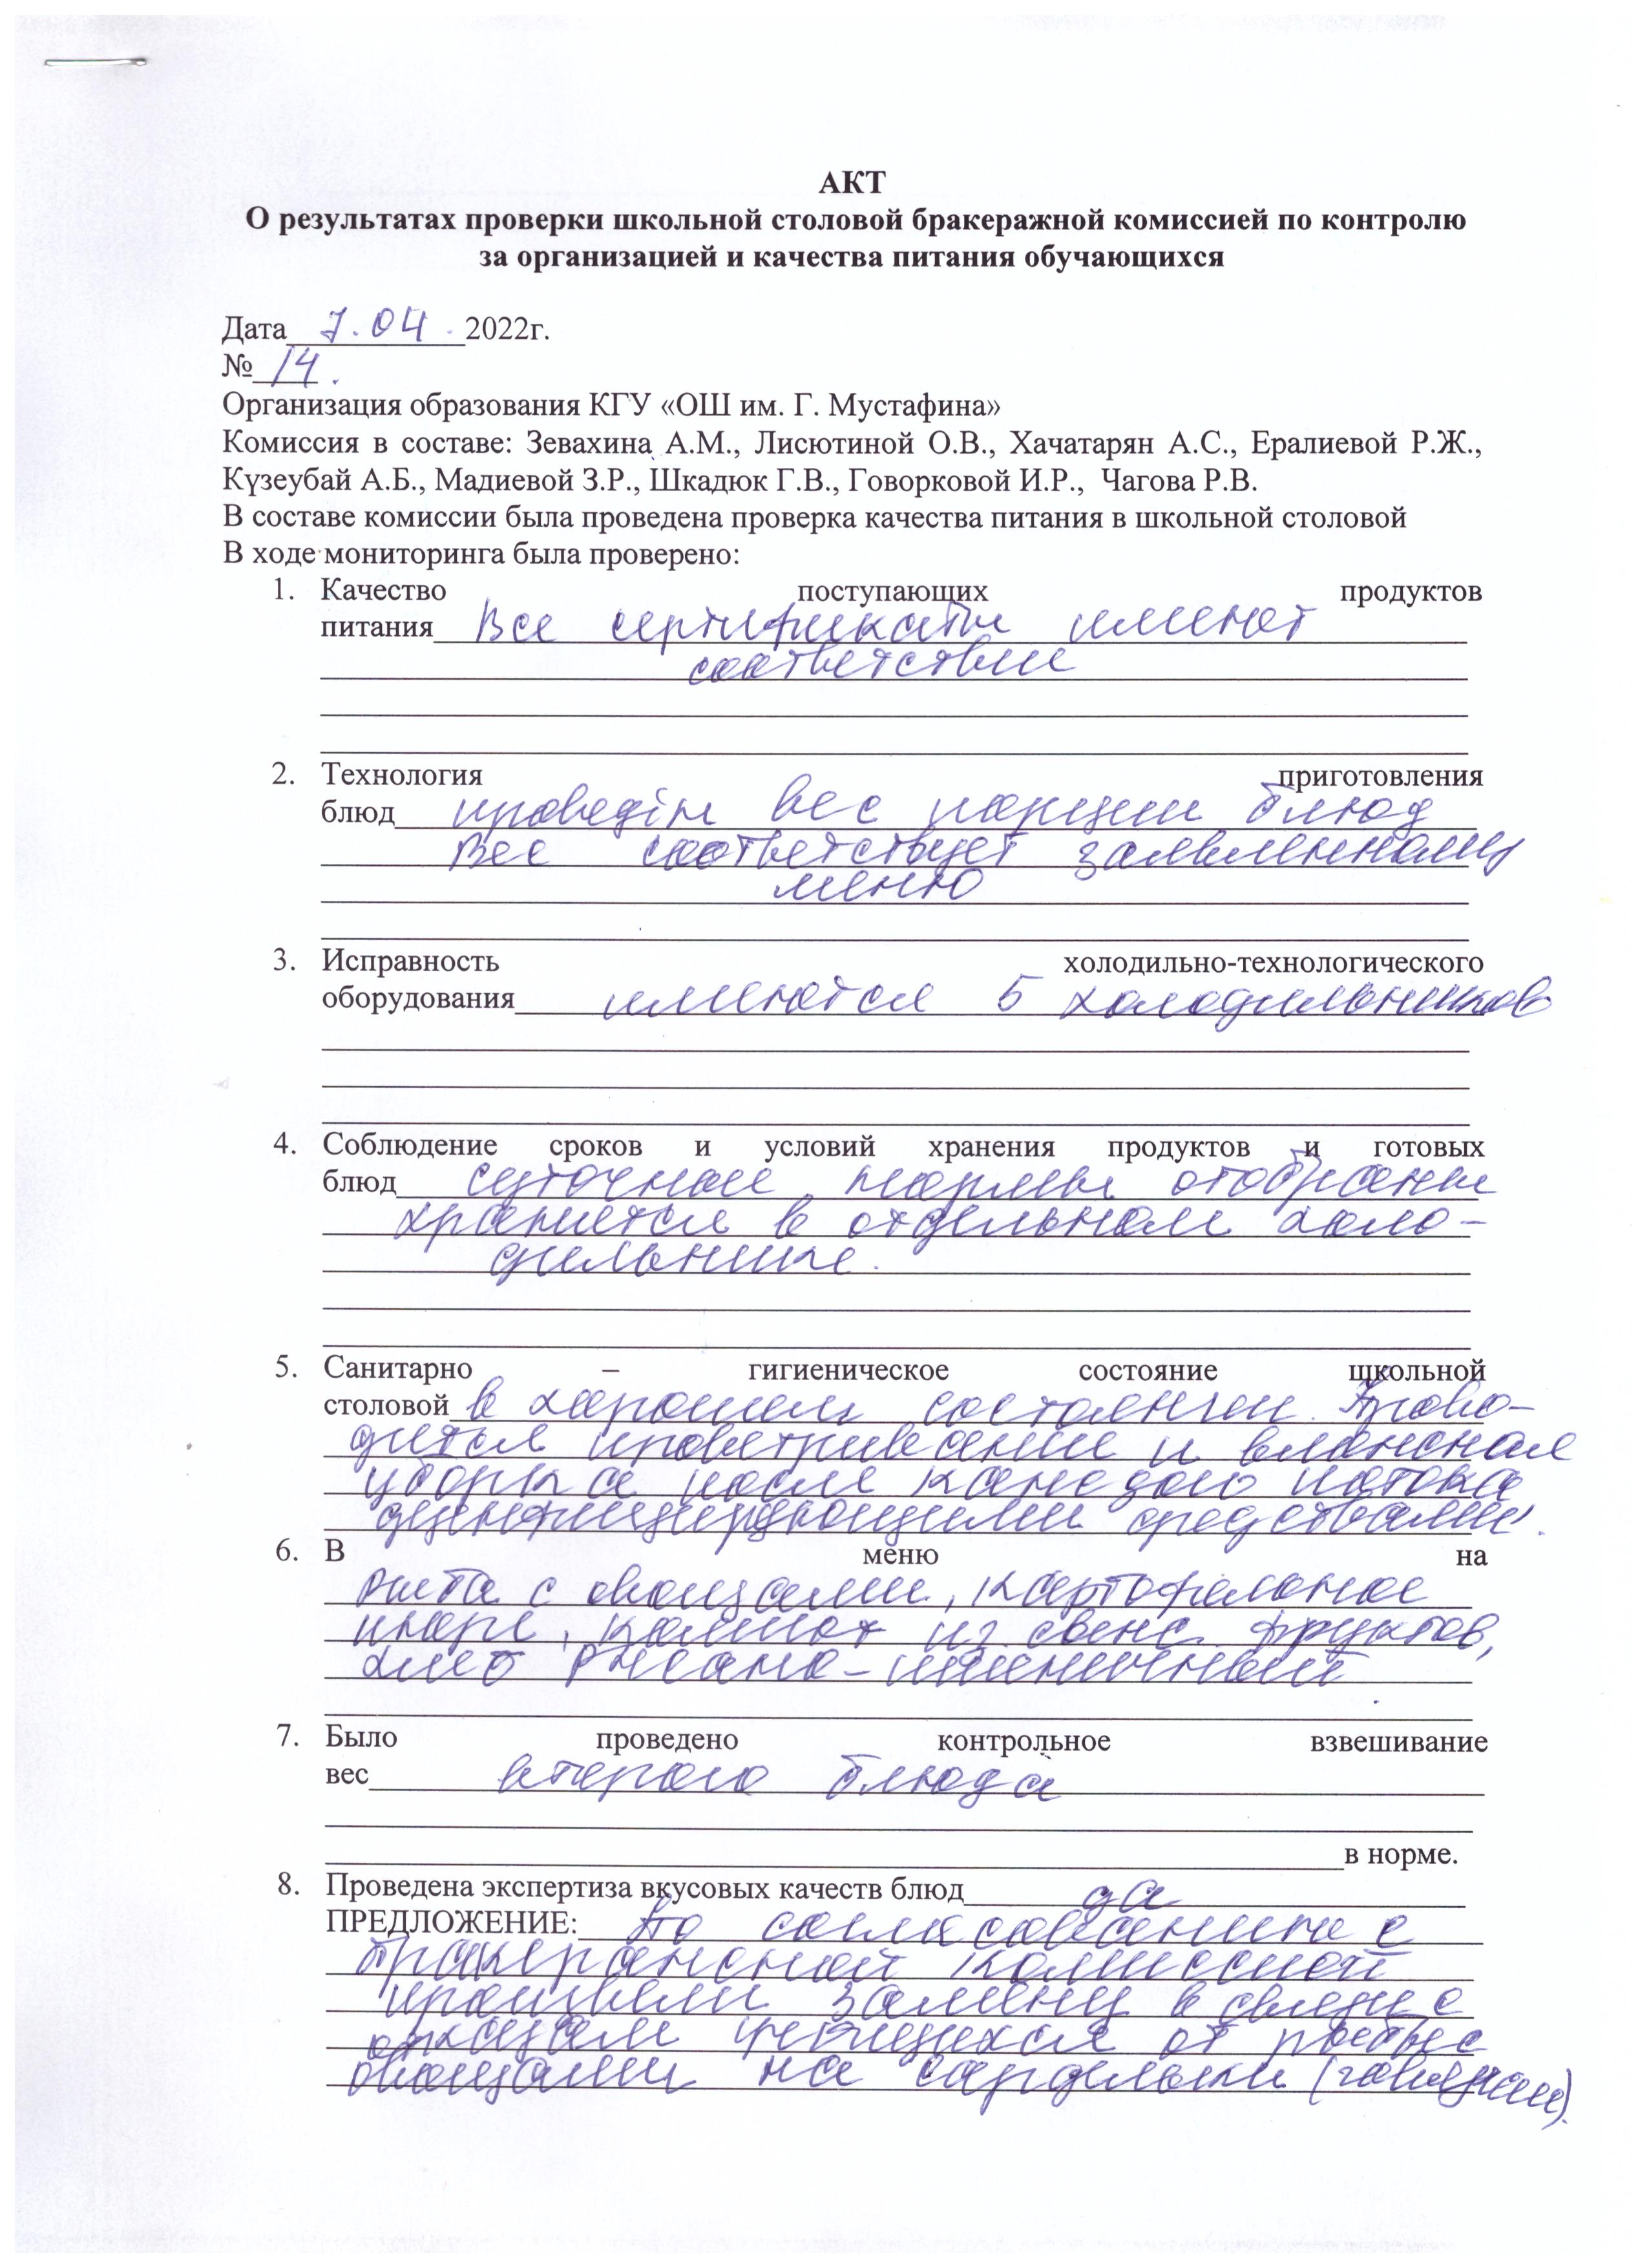 АКТ
О результатах проверки школьной столовой бракеражной комиссией по контролю
за организацией и качества питания обучающихся
Дата 7.04.2022г.
№ 14.
Организация образования КГУ «ОШ им. Г. Мустафина»
Комиссия в составе: Зевахина А.М., Лисютиной О.В., Хачатарян А.С., Ералиевой Р.Ж.,
Күзеубай А.Б., Мадиевой З.Р., Шкадюк Г.В., Говорковой И.Р., Чагова Р.В.
В составе комиссии была проведена проверка качества питания в школьной столовой
В ходе мониторинга была проверено:
1. Качество поступающих продуктов
питания Все сертификаты имеют
соответствие
2. Технология приготовления
блюд вес порции блюд
Вес соответствует заявленному
меню
3. Исправность холодильно-технологического
оборудования имеются 5 холодильников
4. Соблюдение сроков и условий хранения продуктов и готовых
блюд суточные отобраны
хранятся в отдельном холо-
дильнике.
5. Санитарно – гигиеническое состояние школьной
столовой в хорошем состоянии. Прово-
дится проветривание и влажная
уборка после каждого потока
средствами.
6. В меню на
с овощами, картофельное
пюре, компот из свеж. фруктов,
хлеб ржано-пшеничный
7. Было проведено контрольное взвешивание
вес второго блюда
в норме.
8. Проведена экспертиза вкусовых качеств блюд да
ПРЕДЛОЖЕНИЕ: По согласованию с
бракеражной комиссией
замену в связи с
отказом учащихся от
овощами на сардельки (говяжьи).